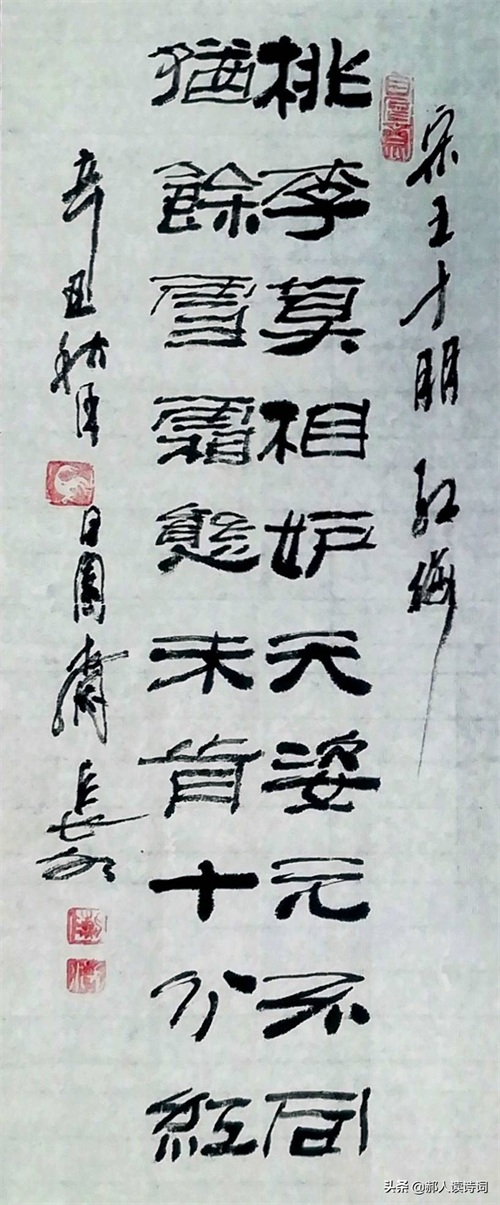 宋王十朋 红梅
桃李莫相妒天姿元不同
猶餘雪霜態未肯十分紅
辛丑秋
頭条 @郝人读诗词